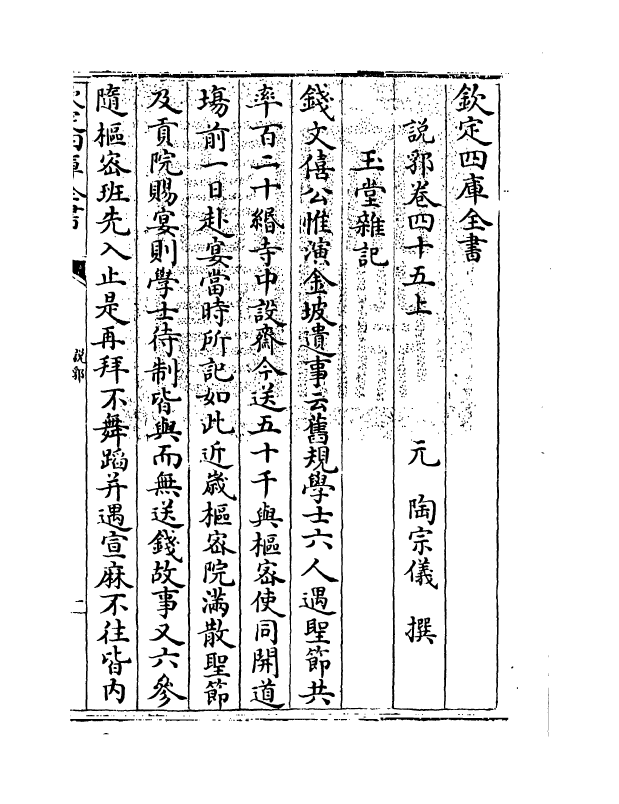 欽定四庫全書
說郛卷四十五上　元　陶宗儀　撰
玉堂雜記
錢文僖公惟演金坡遺事云舊規學士六人遇聖節共
率百二十緡寺中設齋今送五十千與樞宻使同開道
塲前一日赴宴當時所記如此近嵗樞宻院滿散聖節
及貢院賜宴則學士待制皆與而無送錢故事又六參
隨樞宻班先入止是再拜不舞蹈并遇宣麻不往皆内
欽定四庫全書
說郛